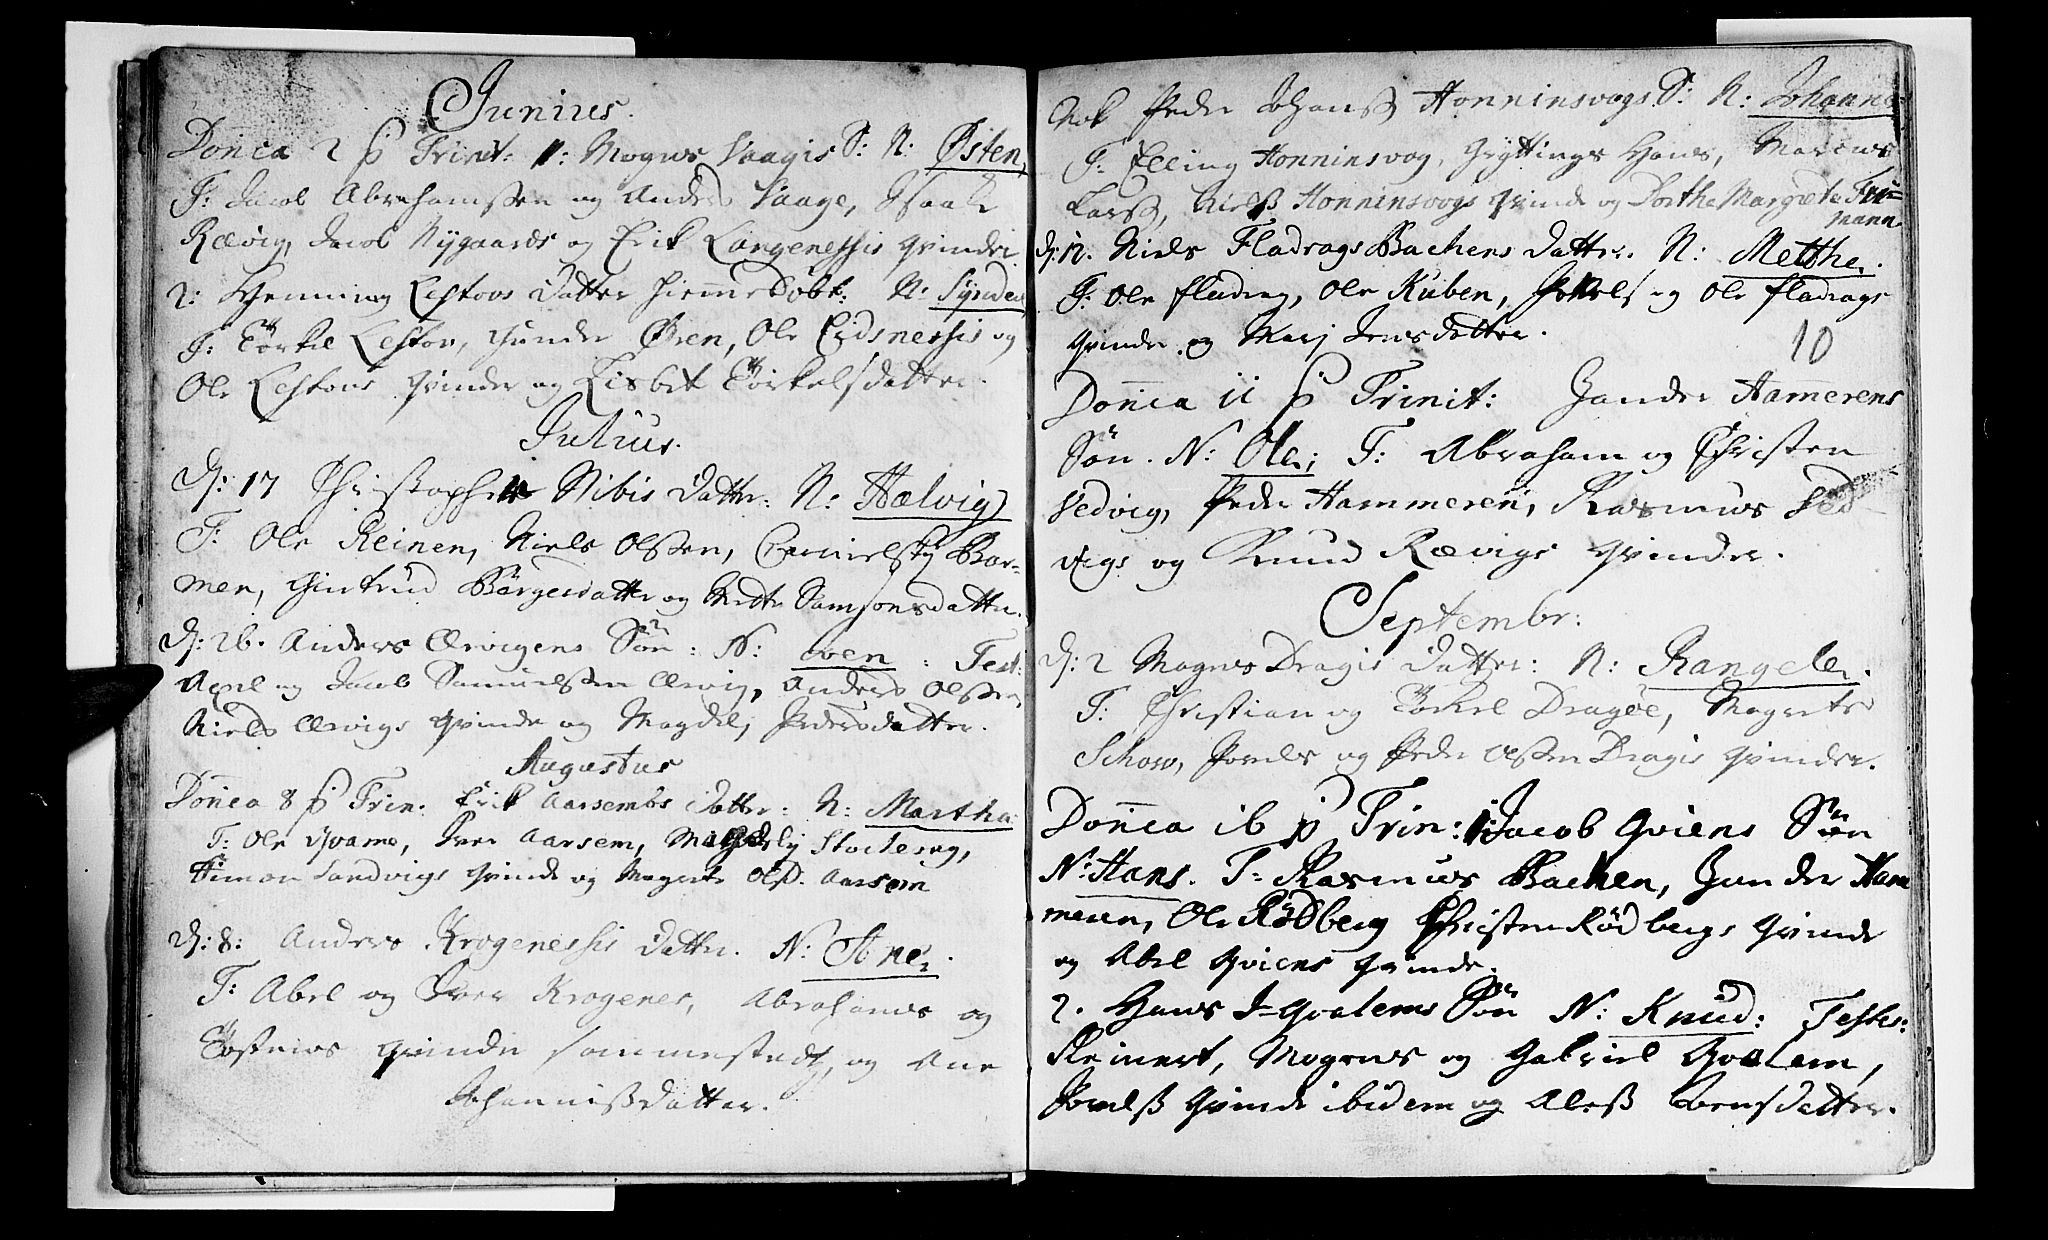 Junius.
Donica 2 p Trinit: 1: Mogens Vaagis S: N: Østen
T: Jacob Abrahamssen og Anders Vaage, Isaak
Rævig, Jacob Nygaards og Erik Langenessis Qvinder
2: Henning Lestous Datter hiemedøbt: N: Synder
T: Törkel Lestou, Gunder Øren, Ole Eidsnessis og
Ole Lestous Qvinder og Lisbet Törkelsdatter.
Julius.
D: 17 Christopher Nibis Datter: N: Hælvig
T: Ole Reinen, Niels Olssen, Bar-
men, Giertrud Börgesdatter og Samsonsdatter.
D: 26. Anders Ervigens Sön: N: Iven: Test:
Axel og Jacob Samuelssen Ervig, Anders Olssen,
Niels Ervigs Qvinde og Magdeli Pedersdatter.
Augustus
Donica 8 p Trin: Erik Aarsembs Datter: N: Martha
T: Ole Qvame, Iver Aarsem, Magdeli
Simon Sandvigs Qvinde og Magrete Olsd. Aarsem
D: 8: Anders Krogenessis Datter. N: Ane.
T: Abel og Iver Krogenes, Abrahams og
Töstens Qvinder sammestedz, og Ane
Johannissdatter.
Nok Peder Johanss Honninsvogs S: N: Johannes
T: Elling Honninsvog, Gryttings Hans, Marcus
Larss, Nielss Honninsvogs Qvinde og Dorthe Margrete Fuh-
mann
D: 12. Niels Fladrags Bachens Datter. N: Metthe.
T: Ole Fladrag, Ole Kuben, og Ole Fladrags
Qvinder og Marj Jensdatter.
10
Donica 11 p Trinit: Gunder Hammerens
Sön. N: Ole; T: Abraham og Christen
Vedvig, Peder Hammeren, Rasmus Ved-
vigs og Knud Rævigs Qvinder.
Septembr:
D: 2 Mogens Dragis Datter: N: Rangele.
T: Christian og Törkel Dragöe, Magrete
Schow, Povels og Peder Olssen Dragis Qvinder.
Donica 16 p Trin: 1: Jacob Qviens Sön
N: Hans. T: Rasmus Bachen, Gunder Ham
meren, Ole Rödberg Christen Rödbergs Qvinde
og Abel Qviens Qvinde.
2. Hans I-Qvalems Sön N: Knud: Testes:
Reinert, Mogens og Gabriel Qvalem,
Povelss Qvinde ibidem og Aless Iversdatter.